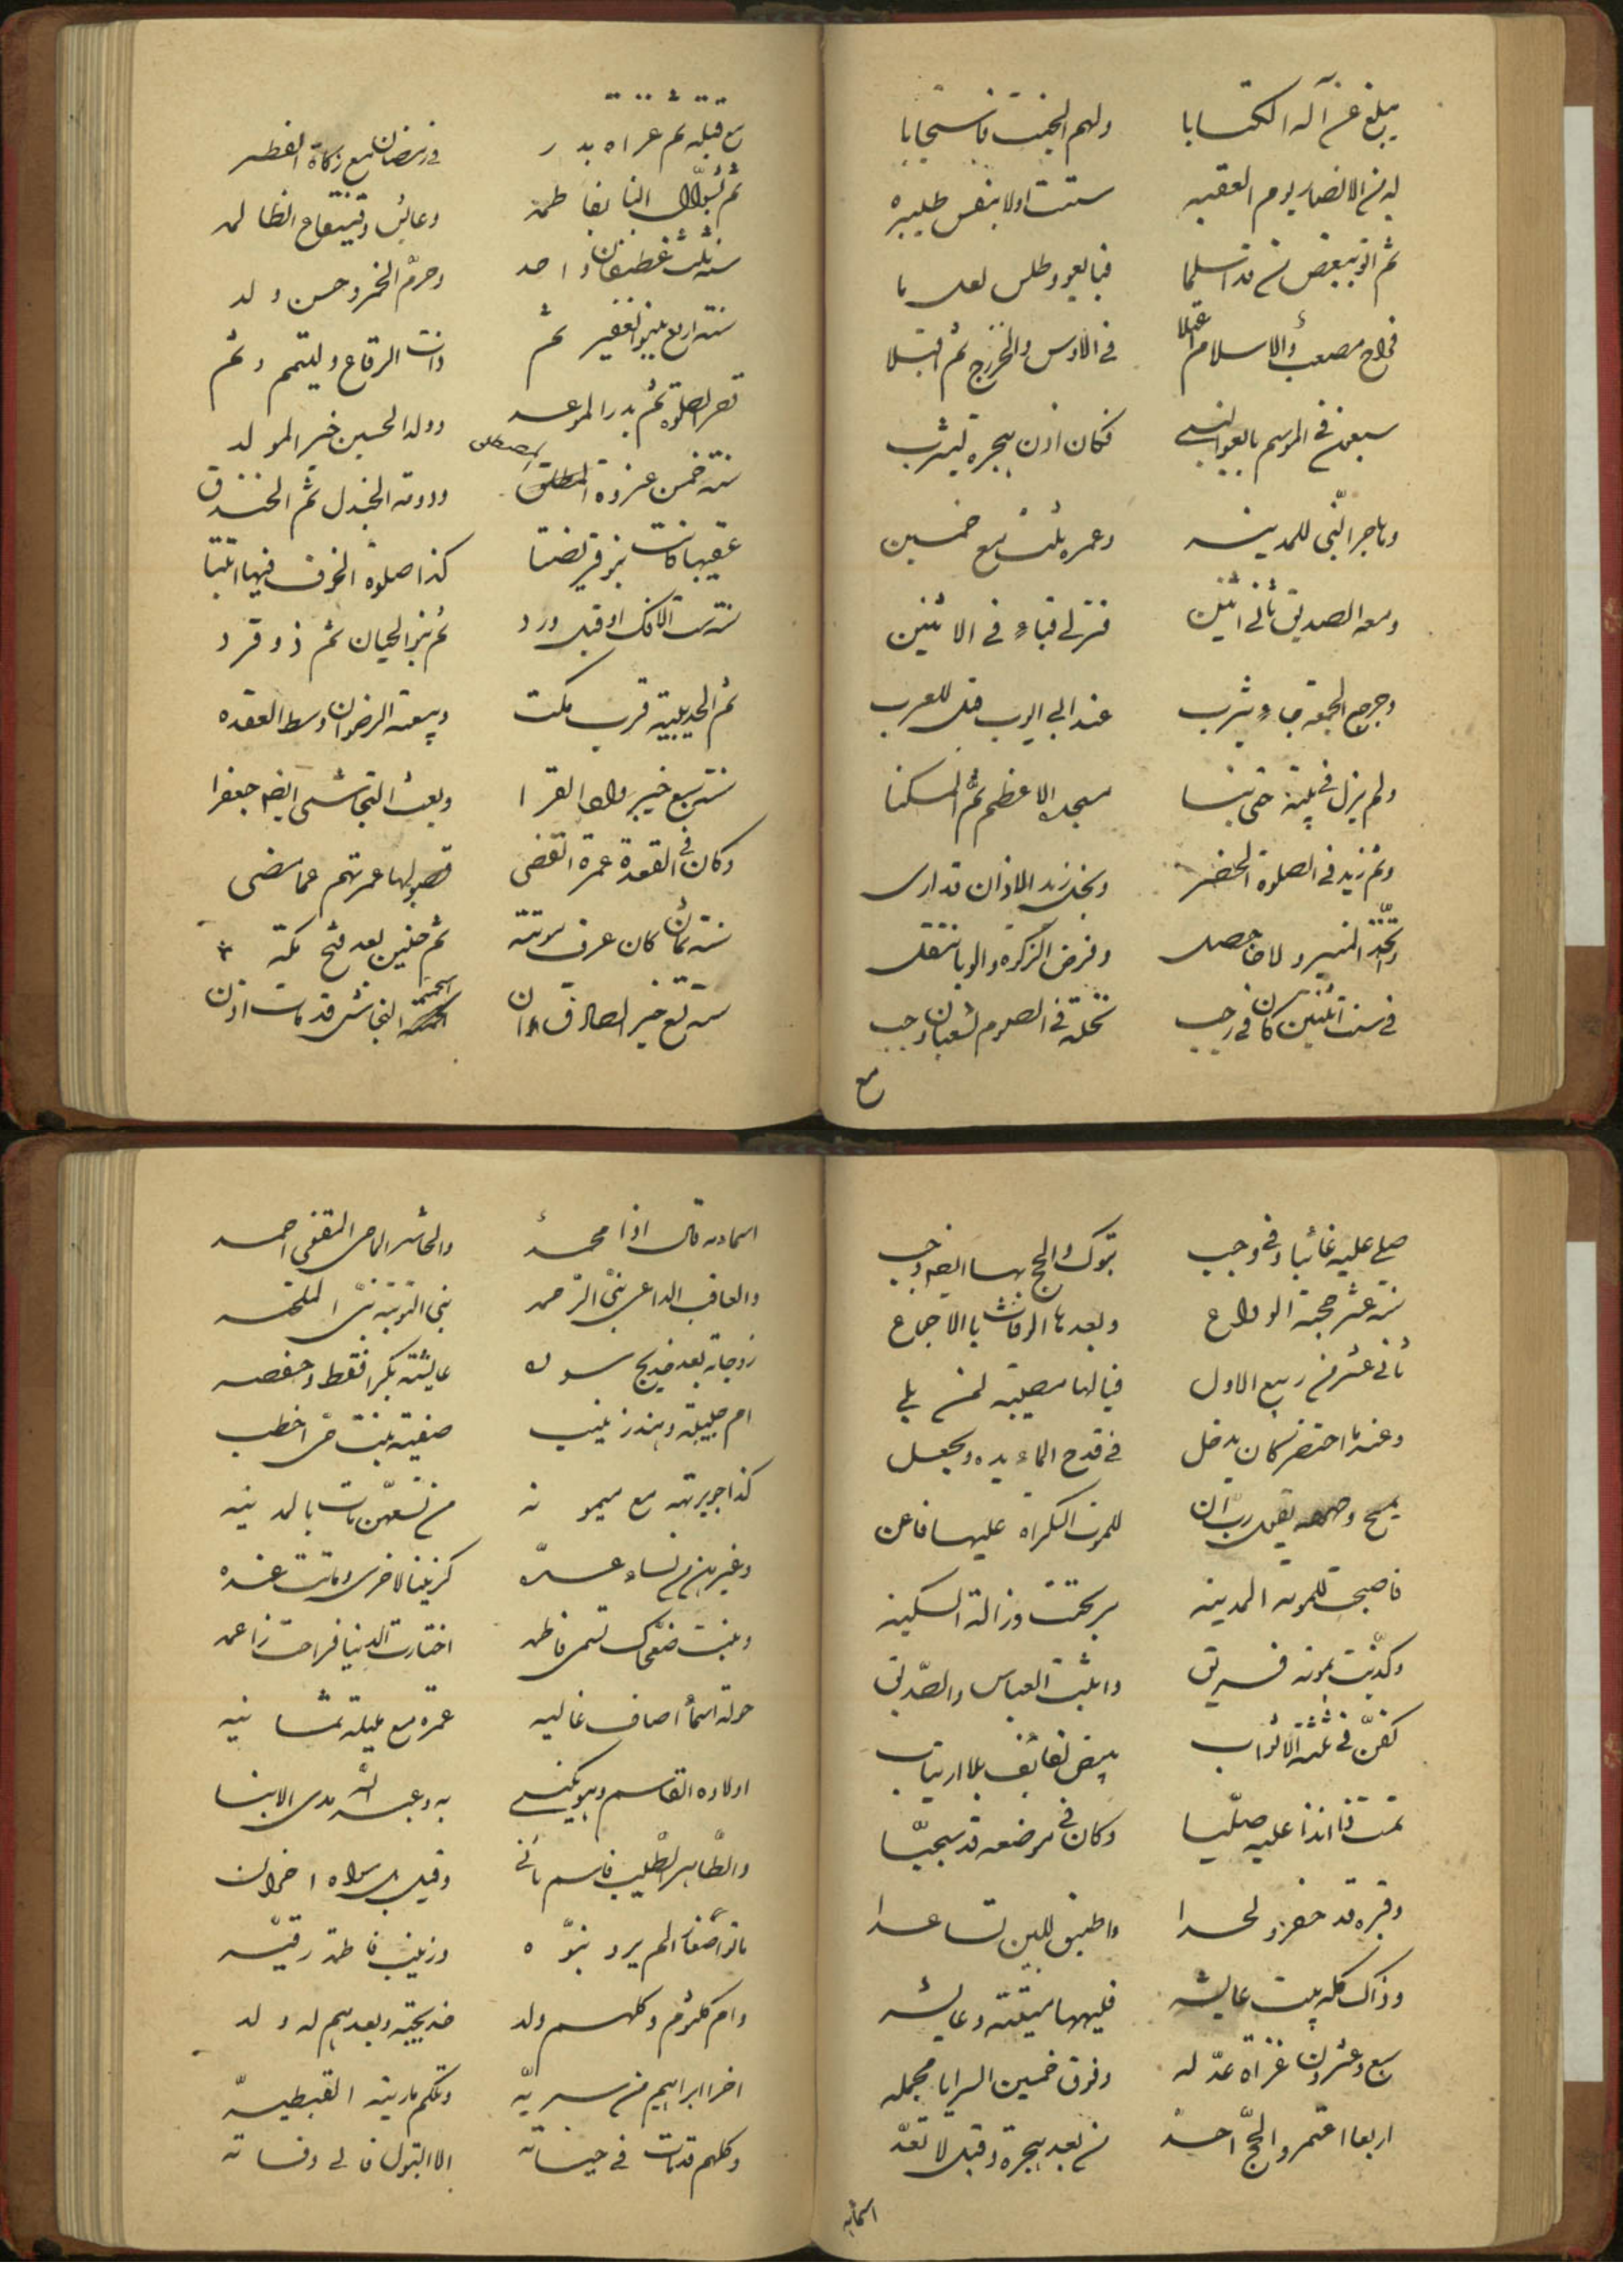 يبلغ عن آله الكتابا ولهم الجنت فاستجابا
له من الانصار يوم العقبه ستت اولا بنفس طيبه
ثم اتو ببعض من قد اسلما فبايعو وطلس لعلما
فراح مصعب والاسلام علا في الاوس والخزرج ثم اقبلا
سبعون في الموسم بايعوا النبي فكان اذن هجرة ليثرب
وهاجر النّبي للمدينه وعمره ثلث مع خمسين
ومعه الصديق ثاني اثنين فنزل قباء في الاثنين
وخرج الجمعة جاء يثرب عند ابي ايوب قبل للعرب
ولم يزل في بيته حتى بنا مسجد الاعظم ثمّ المسكنا
وثم زيد في الصلوة الحضر وبخل زيد الاذان قد ارى
واتّخذ المنبر وفرض الزكوة والوبا انتقل
في سنت اثنين كان في رجب نخلة في الصوم لشعبان وجب
مع
مع قبله ثم غزاه بدر في رمضان مع زكاة الفطر
ثم السّوال البنا بفاطمة وعايش وقينقاع الظالمه
سنة ثلث غطفان واحد وحرّم الخمر وحسن ولد
سنة اربع بنيوا النضير ثم ذات الرقاع وليتمم وثم
قصر الصلوة ثم بدر الموعد وولد الحسين خير المولد
سنة خمس غزوة المصطلق ودومة الجندل ثم الخندق
عقيبها كانت بنو قريضتا كذا صلوة الخوف فيها اثبتا
سنة ست الافك او قبل ورد ثم بنو لحيان ثم ذو قرد
ثم الحديبية قرب مكت وبيعة الرضوان وسط العقده
سنة سبع خيبر وادى القرا وبعث النجاشي ايضه جعفرا
وكان في القعدة عمرة القضى قضو لها عمرتهم عما مضى
سنة ثمان كان عرف موتته ثم حنين بعد فتح مكة
سنة تسع خير الصادق ان اصحمة النجاشى قد مات اذن
صلى عليه غائبا وفي وجب تبوك والحج بها ايضه وجب
سنة عشر حجة الوداع وبعدها الوفات بالاجماع
ثاني عشر من ربيع الاول فيالها مصيبة لمن بلي
وعند ما احتضر كان يدخل في قدح الماء يده ويجعل
يمسح وجهه يقول ربّ ان للموت الكراه عليها فاعن
فاصبحت للموته المدينه بريحت وزالة السكينه
وكذّبت بموته فريق واثبت العباس والصّديق
كفّن في ثلثه الاثواب بيض لفائف بلا ارتياب
تمت فا اندا عليه صلّيا وكان في موضعه قد سجيّا
وقبره قد حفر ولحدا واطبق اللبن تساعدا
وذاك كله ببيت عايشه فليهها ميتته وعايشه
سبع وعشرون غزاة عدّ له وفوق خمسين السرايا مجمله
اربعا اعتمر والحجّ احد من بعد هجرة وقبل لا تعدّ
اسمائه
اسماءه قال اذا محمد والحاشر الماحى المقفى احمد
والعاقب الداعي نبىّ الرّحمه نبي التوبة نبىّ الملحمه
زوجاته بعد خديج سوده عايشه بكرا فقط وحفصه
ام حبيبة وهند زينب صفيه بنت حىّ اخطب
كذا جويرته مع ميمونه من تسعهنّ مات بالمدينه
وغيرهن من نساء عدّه كزينب الاخرى وماتت عنده
وبنت ضحّاك تسمى فاطمه اختارت الدنيا فراحت زاعمه
خولة اسما اصاف غاليه عمرة مع مليكة ثمانيه
اولاده القاسم وهو يكنى به وعبد الله مدى الابنا
والطّاهر الطّيب قاسم ثاني وقيل بل سواه اخوان
ماتو اضغارا لم يرد نبوّه وزينب فاطمة رقيّه
وام كلثوم وكلهم ولد خديجة وبعدهم له ولد
اخرا ابراهيم من سريّه وتلكم مارية القبطيّه
وكلهم قد مات في حياته الا البتول فالى وفاته